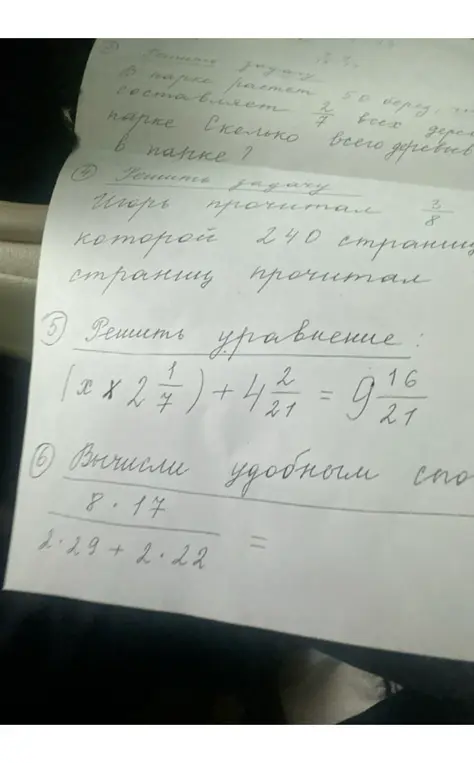 Решить задачу
В парке растет 50 берёз,
составляет 2/7 всех
парке Сколько всего деревьев
в парке?
④ Решить задачу
Игорь прочитал 3/8
которой 240 страниц
страниц прочитал
⑤ Решить уравнение:
(х х 2 1/7) + 4 2/21 = 9 16/21
⑥ Вычисли удобным
8 · 17
2·29 + 2·22 =